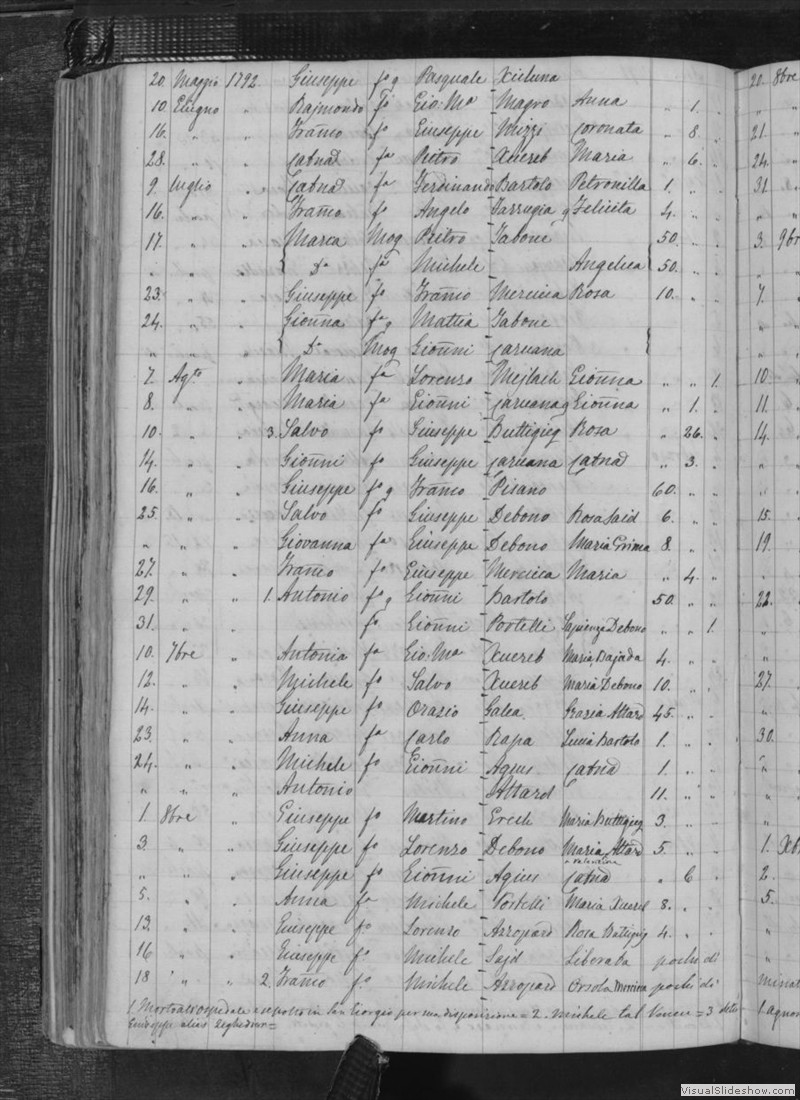 20. Maggio 1792 Giuseppe fo g Pasquale Xicluna
10. Giugno " Rajmondo fo Gio: Ma Magro Anna " 1. "
16. " " Franco fo Giuseppe Mizzi Coronata " 8. "
28. " " Catnd fa Pietro Xuereb Maria " 6. "
9. Luglio " Catnd fa Ferdinando Bartolo Petronilla 1. " "
16. " " Franco fo Angelo Farrugia g Felicita 4. " "
17. " " Maria Mog Pietro Tabone 50. " "
" " " { Da fa Michele Angelica { 50. " "
23. " " Giuseppe fo Franco Mercieca Rosa 10. " "
24. " " Gionna fa g Mattia Tabone
" " " { Da Mog Gionni Caruana {
7. Agto " Maria fa Lorenzo Mejlach Gionna " " 1.
8. " " Maria fa Gionni Caruana g Gionna " 1. "
10. " " 3. Salvo fo Giuseppe Buttigieg Rosa " 26. "
14. " " Gionni fo Giuseppe Caruana Catnd " 3. "
16. " " Giuseppe fo g Franco Pisano 60. " "
25. " " Salvo fo Giuseppe Debono Rosa Said 6. " "
" " " Giovanna fa Giuseppe Debono Maria Grima 8. " "
27. " " Franco fo Giuseppe Mercieca Maria " 4. "
29. " " 1. Antonio fo g Gionni Bartolo 50. " "
31. " " fo Gionni Portelli Sapienza Debono " " 1.
10. 7bre " Antonia fa Gio: Ma Xuereb Maria Bajada 4. " "
12. " " Michele fo Salvo Xuereb Maria Debono 10. " "
14. " " Giuseppe fo Orazio Galea Grazia Attard 45. " "
23. " " Anna fa Carlo Rapa Lucia Bartolo 1. " "
24. " " Michele fo Gionni Agius Catnd 1. " "
" " " Antonio Attard 11. " "
1. 8bre " Giuseppe fo Martino Grech Maria Buttigieg 3. " "
3. " " Giuseppe fo Lorenzo Debono Maria Attard 5. " "
" " " Giuseppe fo Gionni Agius Catnd " 6 "
5. " " Anna fa Michele Portelli Maria Xuereb 8. " "
13. " " Giuseppe fo Lorenzo Azzopard Rosa Buttigieg 4. " "
16 " " Giuseppe fo Michele Sajd Liberata pochi di
18 " " 2. Franco fo Michele Azzopard Orsola pochi di
1. Morto all'ospedale e sepolto in San Giorgio per sua disposizione = 2. Michele tal = 3 detto
Giuseppe alias
20. 8bre
"
21.
24.
31.
"
3. 9bre
"
7.
"
"
10.
11.
14.
"
"
15.
19.
"
22.
"
"
27.
"
30.
"
"
"
1. Xb
2.
5.
"
"
minat
1. agnom
VisualSlideshow.com